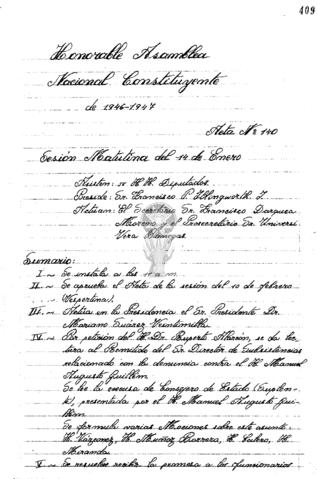 409
Honorable Asamblea
Nacional Constituyente
de 1946-1947
Acta Nº 140
Sesión Matutina del 14 de Enero
Asisten: HH. Diputados.
Preside: Sr. Francisco P. Illingworth I.
Actúan: El Secretario Sr. Francisco Darquea
Moreno y el Prosecretario Sr. Universi
Vera
Sumario:
I.- Se instala a las a.m.
II.- Se aprueba el Acta de la sesión del 10 de febrero
(Vespertina).
III.- Actúa en la Presidencia el Sr. Presidente Dr.
Mariano Suárez Veintimilla.
IV.- Por petición del H. Dr. Ruperto Alarcón, se da lec-
tura al Remitido del Sr. Director de Subsistencias
relacionado con la denuncia contra el H. Manuel
Augusto Guillén.
Se lee la excusa de Consejero de Estado (Suplen-
te), presentada por el H. Manuel Augusto Gui-
llén.
Se formula varias Mociones sobre este asunto:
H. Vázquez, H. Muñoz Borrero, H. Valero, H.
Miranda.
V.- Se resuelve recibir la promesa a los funcionarios